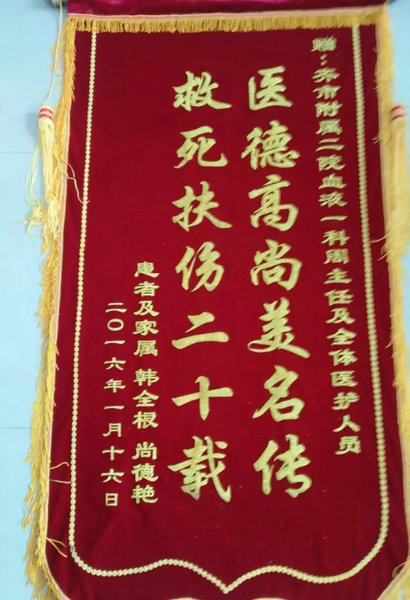 赠:齐市附属二院血液一科周主任及全体医护人员
医德高尚美名传
救死扶伤二十载
患者及家属 韩全根 尚德艳
二〇一六年一月十六日